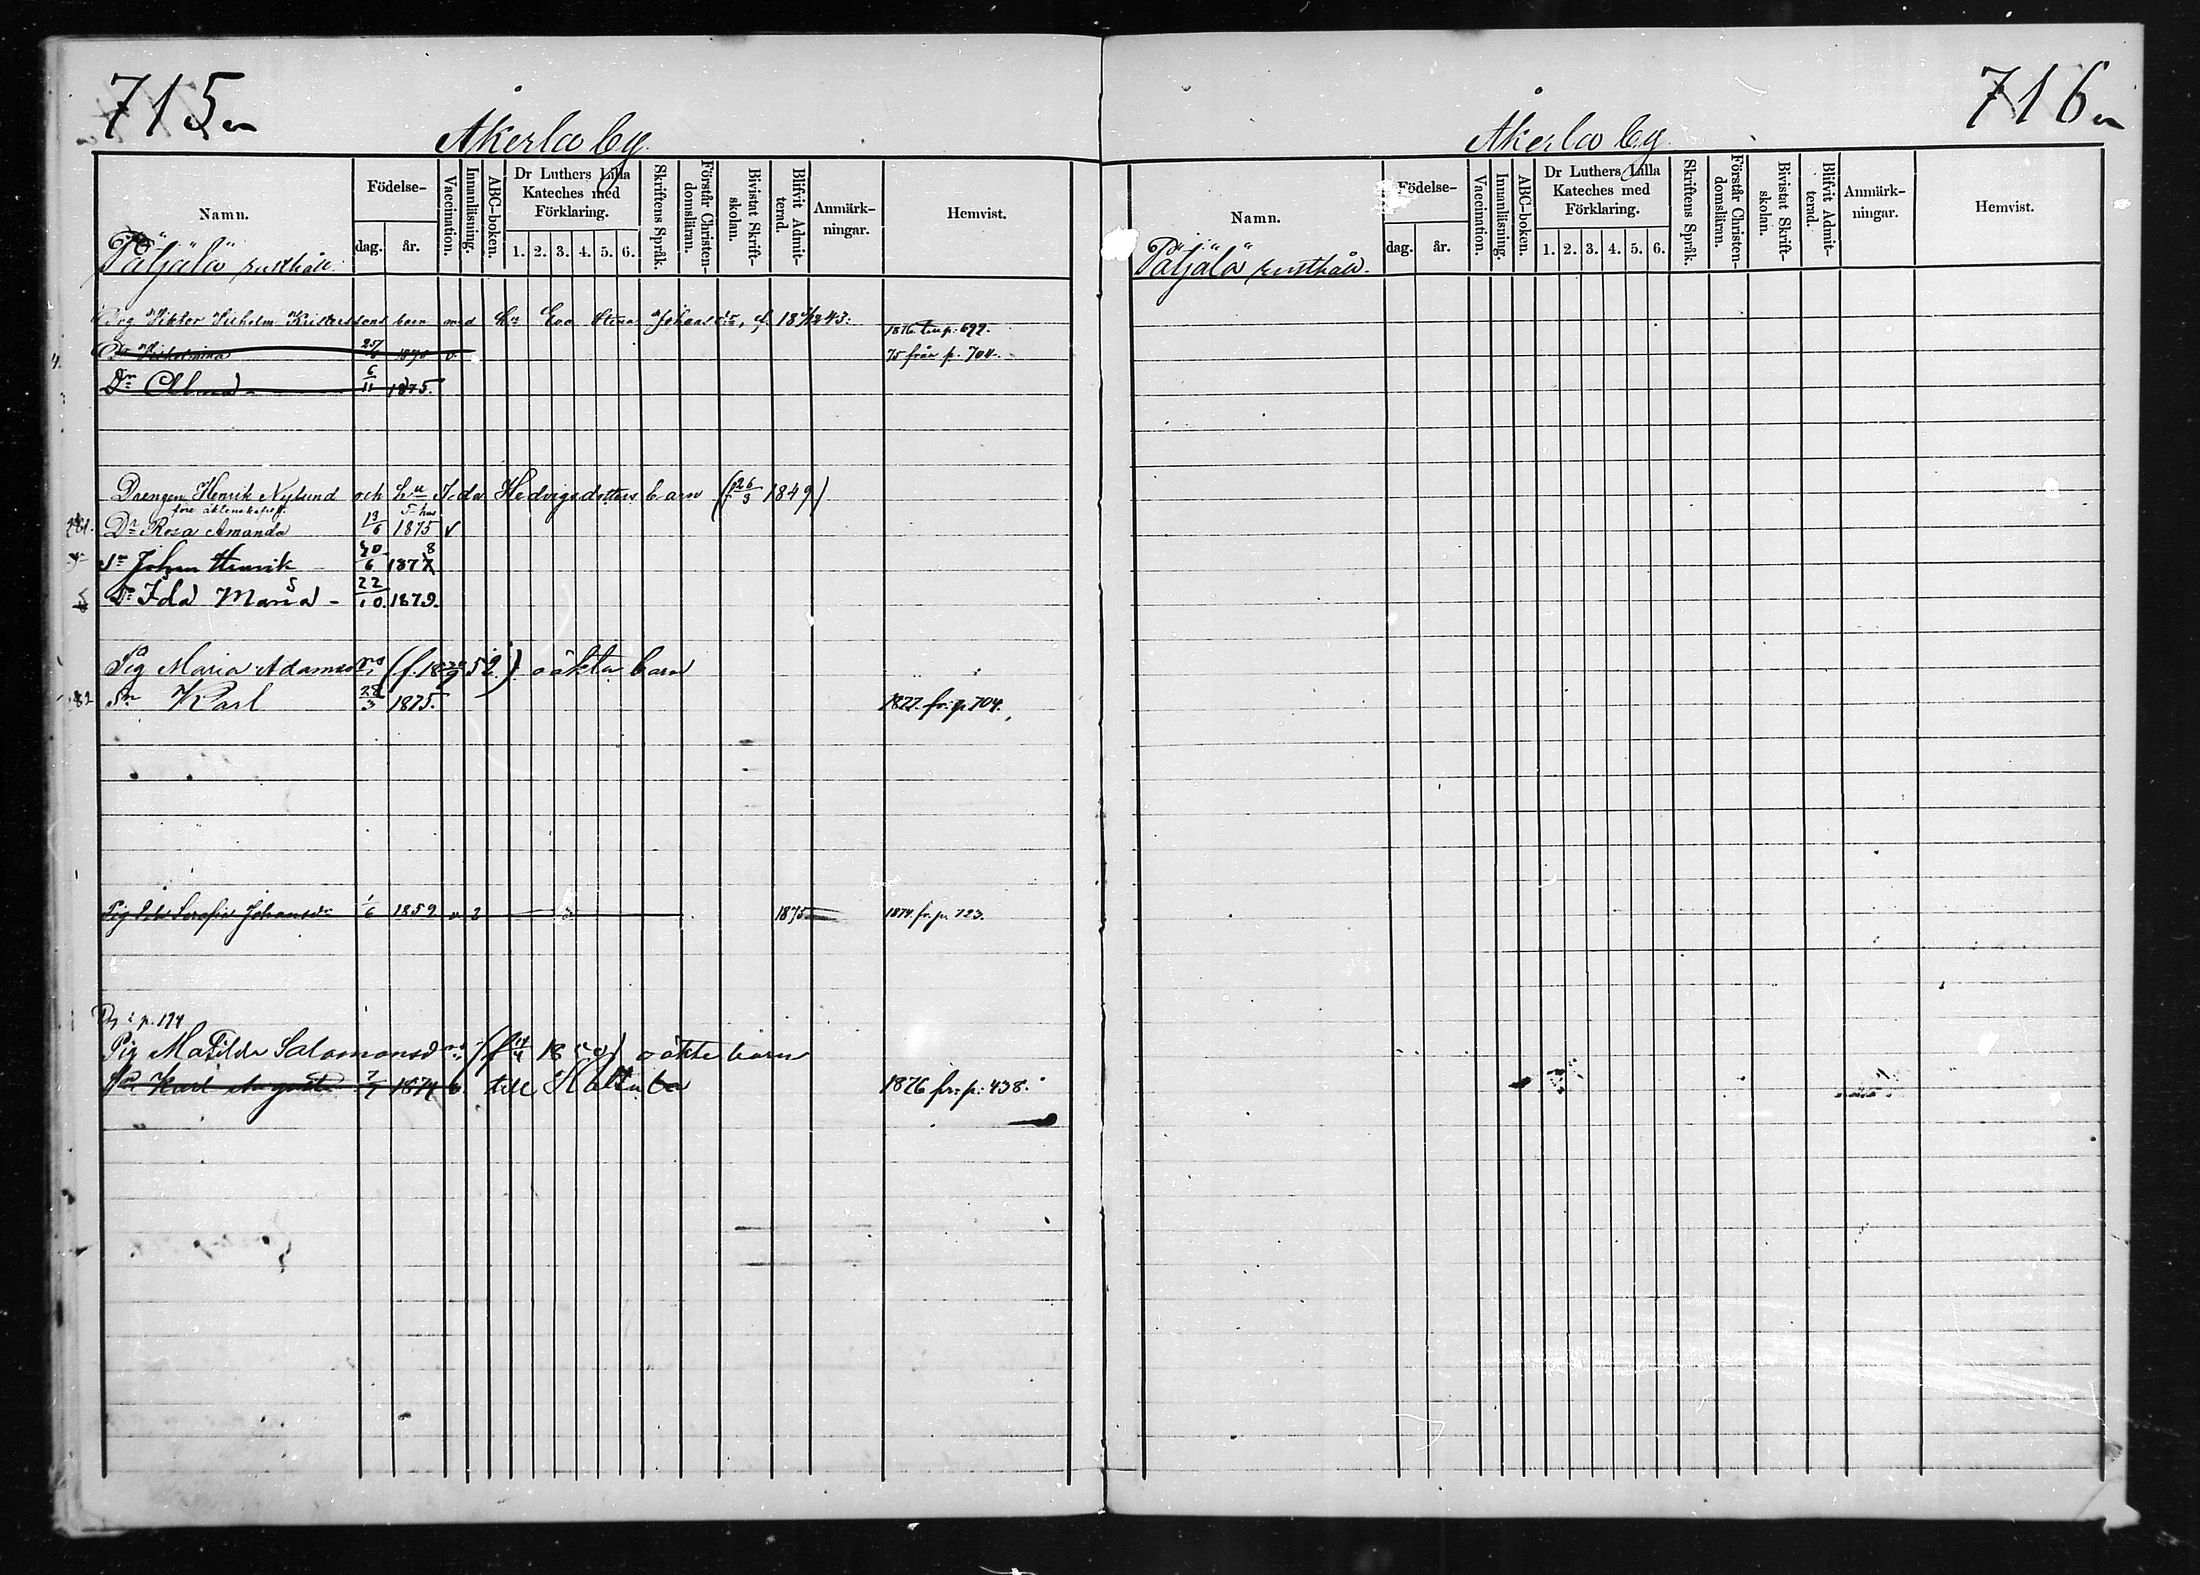 715
Åkerla by.
Namn. Födelse- dag. år. Vaccination. Innanläsning. ABC-boken. Dr Luthers Lilla Kateches med Förklaring. 1. 2. 3. 4. 5. 6. Skriftens Språk. Förstår Christen-domsläran. Bivistat Skrift-skolan. Blifvit Admit-terad. Anmärk-ningar. Hemvist.
Päljälä rusthåll.
Viktor Vilhelm Kristerssons barn med hu Eva Stina Johansdr, f. 1843.
1876 p. 692.
Dr Vilhelmina 1870 v. 75 från p. 704.
Dr Alma 6/11 1875.
Drengen Henrik Nylund och hu Ida Hedvigsdotters barn (f 26/3 1849)
före äktenskapet
Dr Rosa Amanda 13/6 1875 v
Sn Johan Henrik 6 1877 8
Dr Ida Maria 22/10. 1879.
Pig Maria Adamsd (f. 18 52.) oäkta barn
82 Sn Karl 28/3 1875. 1877. fr. p. 704.
Pig Serafia Johansdr 1/6 1859 v 2 1875 1874. fr. p. 723.
p. 174
Pig Matilda Salomonsd (f 4 18) oäkta barn
Sn Karl August 7 1874 v. till 1876 fr. p. 438.
716
Åkerla by
Namn. Födelse- dag. år. Vaccination. Innanläsning. ABC-boken. Dr Luthers Lilla Kateches med Förklaring. 1. 2. 3. 4. 5. 6. Skriftens Språk. Förstår Christen-domsläran. Bivistat Skrift-skolan. Blifvit Admit-terad. Anmärk-ningar. Hemvist.
Päljälä rusthåll.